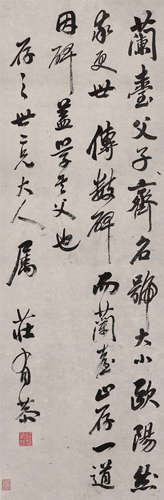 蘭臺父子齊名號大小歐陽然
家更世傳數碑而蘭臺止存一道
因碑蓋學其父也
存之世二兄大人屬
莊有恭